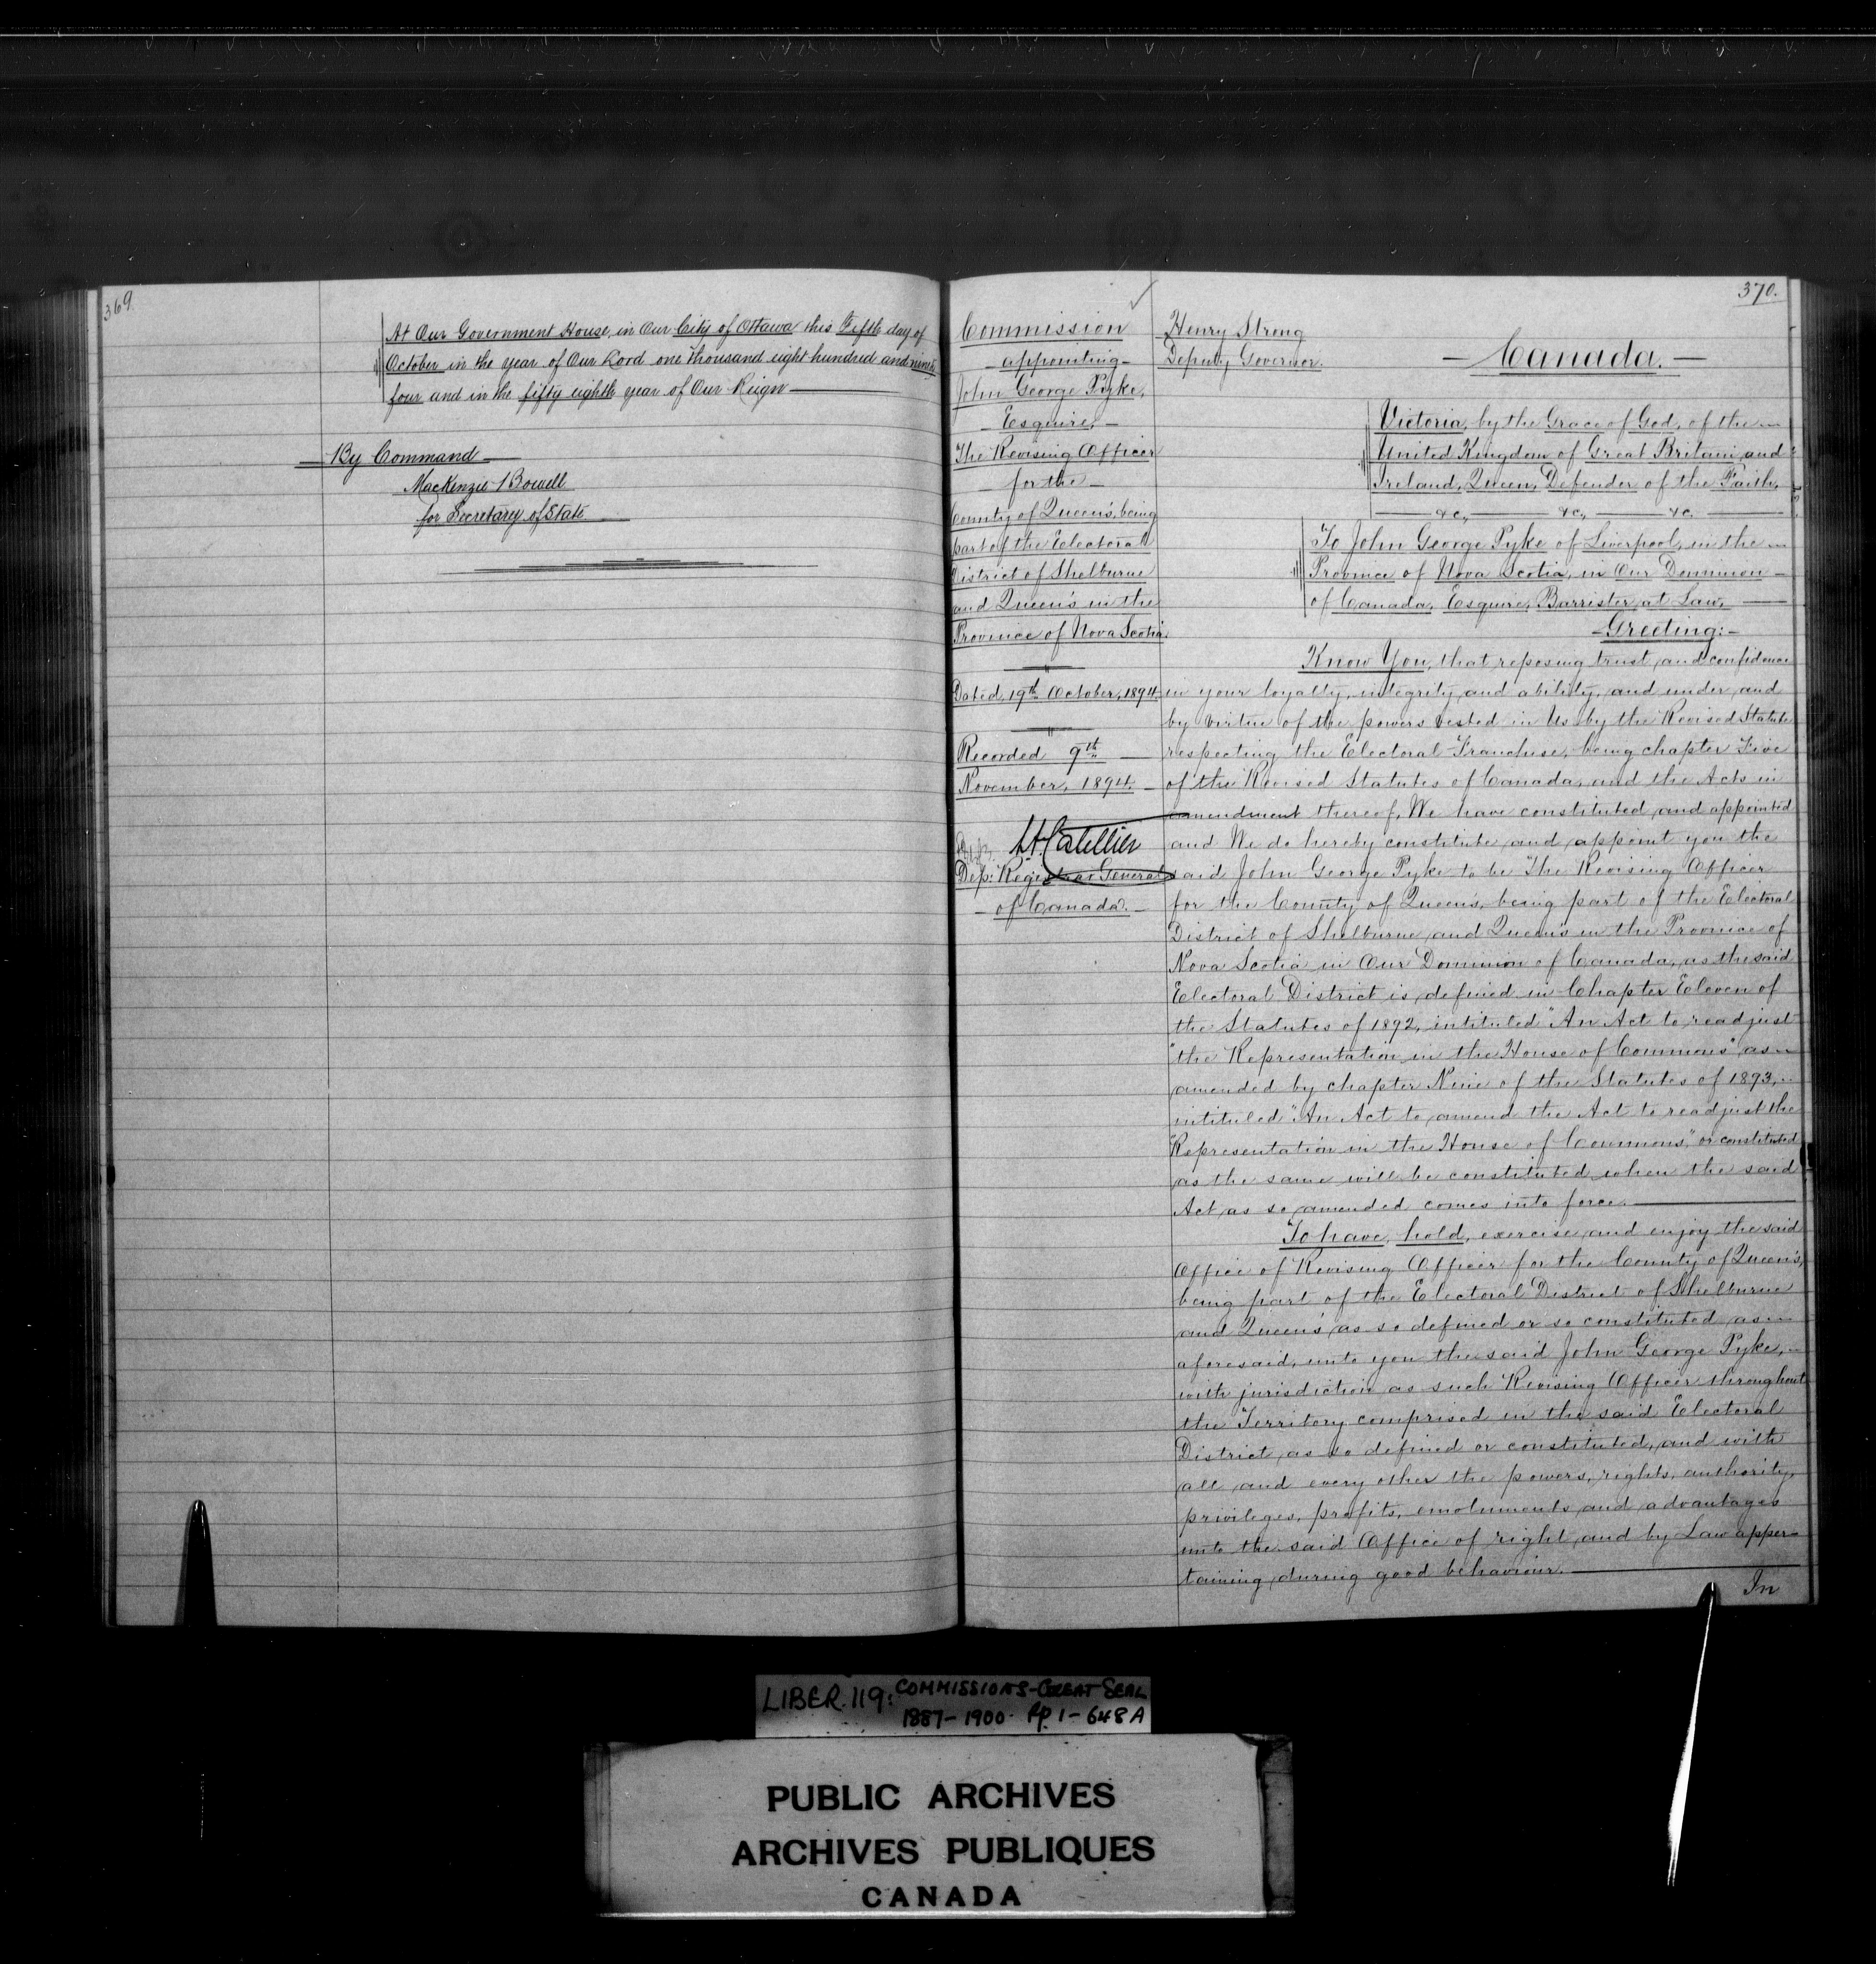 369
At Our Government House, in Our City of Ottawa this Fifth day of
October in the year of Our Lord one thousand eight hundred and ninety
four and in the fifty eighth year of Our Reign
By Command
MacKenzie Bowell
for Secretary of State
370.
Commission
appointing
John George Pyke,
Esquire,
The Revising Officer
for the
County of Queen's, being
part of the Electoral
District of Shelburne
and Queen's in the
Province of Nova Scotia
Dated, 19th October, 1894
Recorded 9th
November, 1894.
L.A. Catellier
Dep: Registrar General
of Canada.
Henry Strong
Deputy Governor.
Canada.
Victoria, by the Grace of God, of the
United Kingdom of Great Britain and
Ireland, Queen, Defender of the Faith,
&c, &c, &c.
To John George Pyke of Liverpool, in the
Province of Nova Scotia, in Our Dominion
of Canada, Esquire, Barrister at Law,
Greeting:
Know You, that reposing trust and confidence
in your loyalty, integrity and ability, and under and
by virtue of the powers vested in Us by the Revised Statute
respecting the Electoral Franchise, being chapter Five
of the Revised Statutes of Canada, and the Acts in
amendment thereof, We have constituted and appointed
and We do hereby constitute and appoint you the
said John George Pyke to be The Revising Officer
for the County of Queen's, being part of the Electoral
District of Shelburne and Queen's in the Province of
Nova Scotia in Our Dominion of Canada, as the said
Electoral District is defined in Chapter Eleven of
the Statutes of 1892, intituled "An Act to readjust
"the Representation in the House of Commons" as
amended by chapter Nine of the Statutes of 1893,
intituled "An Act to amend the Act to readjust the
"Representation in the House of Commons," or constituted
as the same will be constituted when the said
Act as so amended comes into force.
To have, hold, exercise and enjoy the said
Office of Revising Officer for the County of Queen's,
being part of the Electoral District of Shelburne
and Queen's as so defined or so constituted as
aforesaid, unto you the said John George Pyke,
with jurisdiction as such Revising Officer throughout
the Territory comprised in the said Electoral
District, as so defined or constituted, and with
all and every other the powers, rights, authority,
privileges, profits, emoluments and advantages
unto the said Office of right and by Law apper-
taining, during good behaviour.
In
LIBER.119: COMMISSIONS-GREAT SEAL
1887-1900. Pp. 1-648A
PUBLIC ARCHIVES
ARCHIVES PUBLIQUES
CANADA